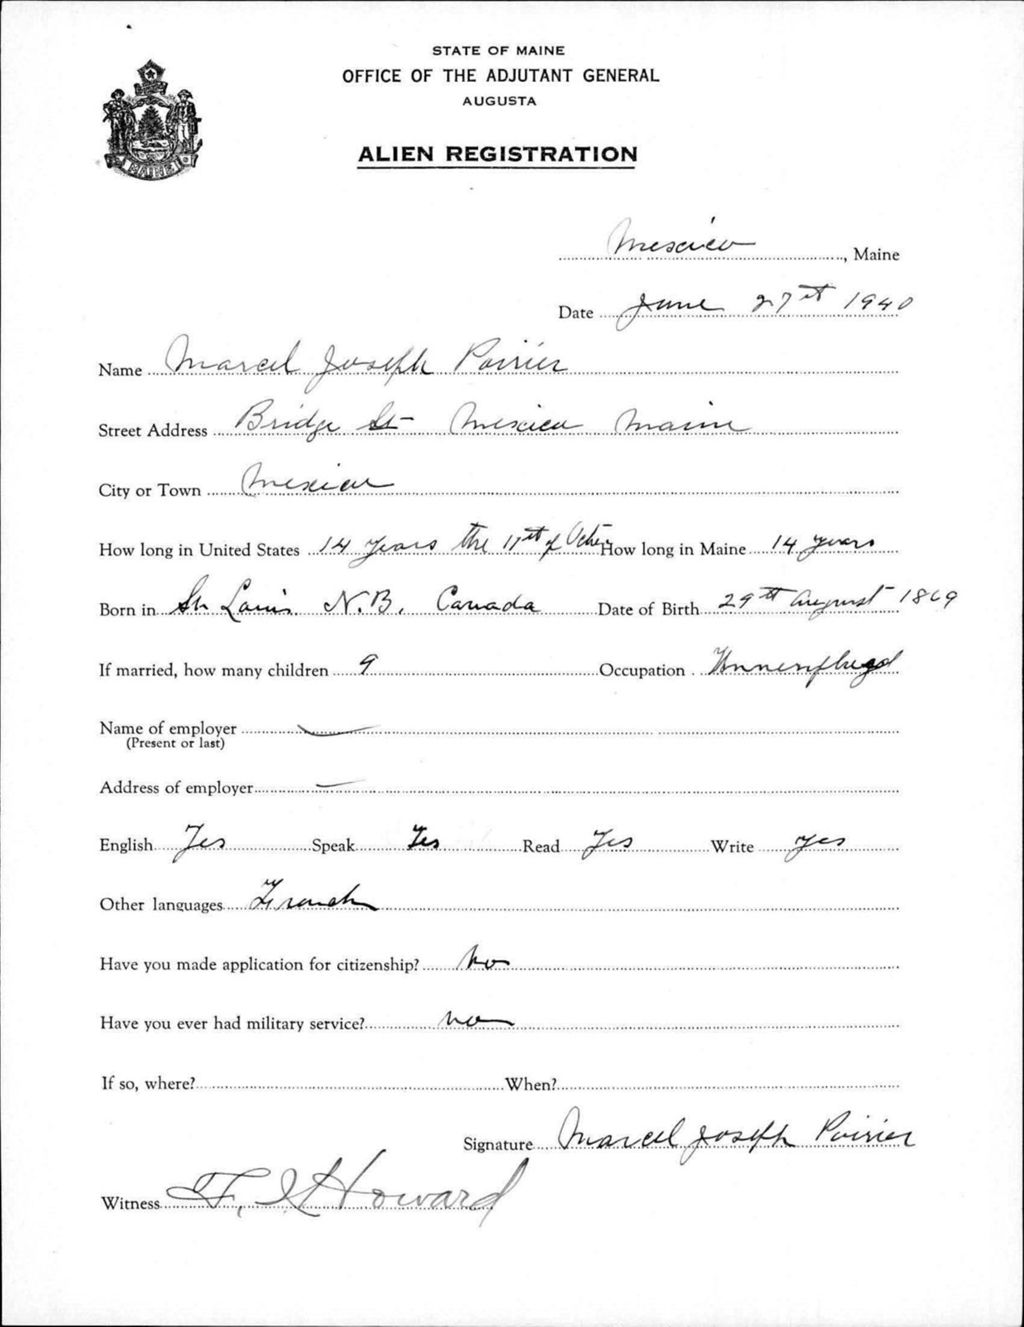 STATE OF MAINE
OFFICE OF THE ADJUTANT GENERAL
AUGUSTA
ALIEN REGISTRATION
MAINE
Mexico, Maine
Date June 27st 1940
Name Marcel Joseph Poirier
Street Address Bridge St Mexico Maine
City or Town Mexico
How long in United States 14 years the 11st of How long in Maine 14 years
Born in St Louis N.B. Canada Date of Birth 29th August 1869
If married, how many children 9 Occupation
Name of employer
(Present or last)
Address of employer
English Yes Speak Yes Read Yes Write yes
Other languages French
Have you made application for citizenship? No
Have you ever had military service? no
If so, where? When?
Signature Marcel Joseph Poirier
Witness Howard